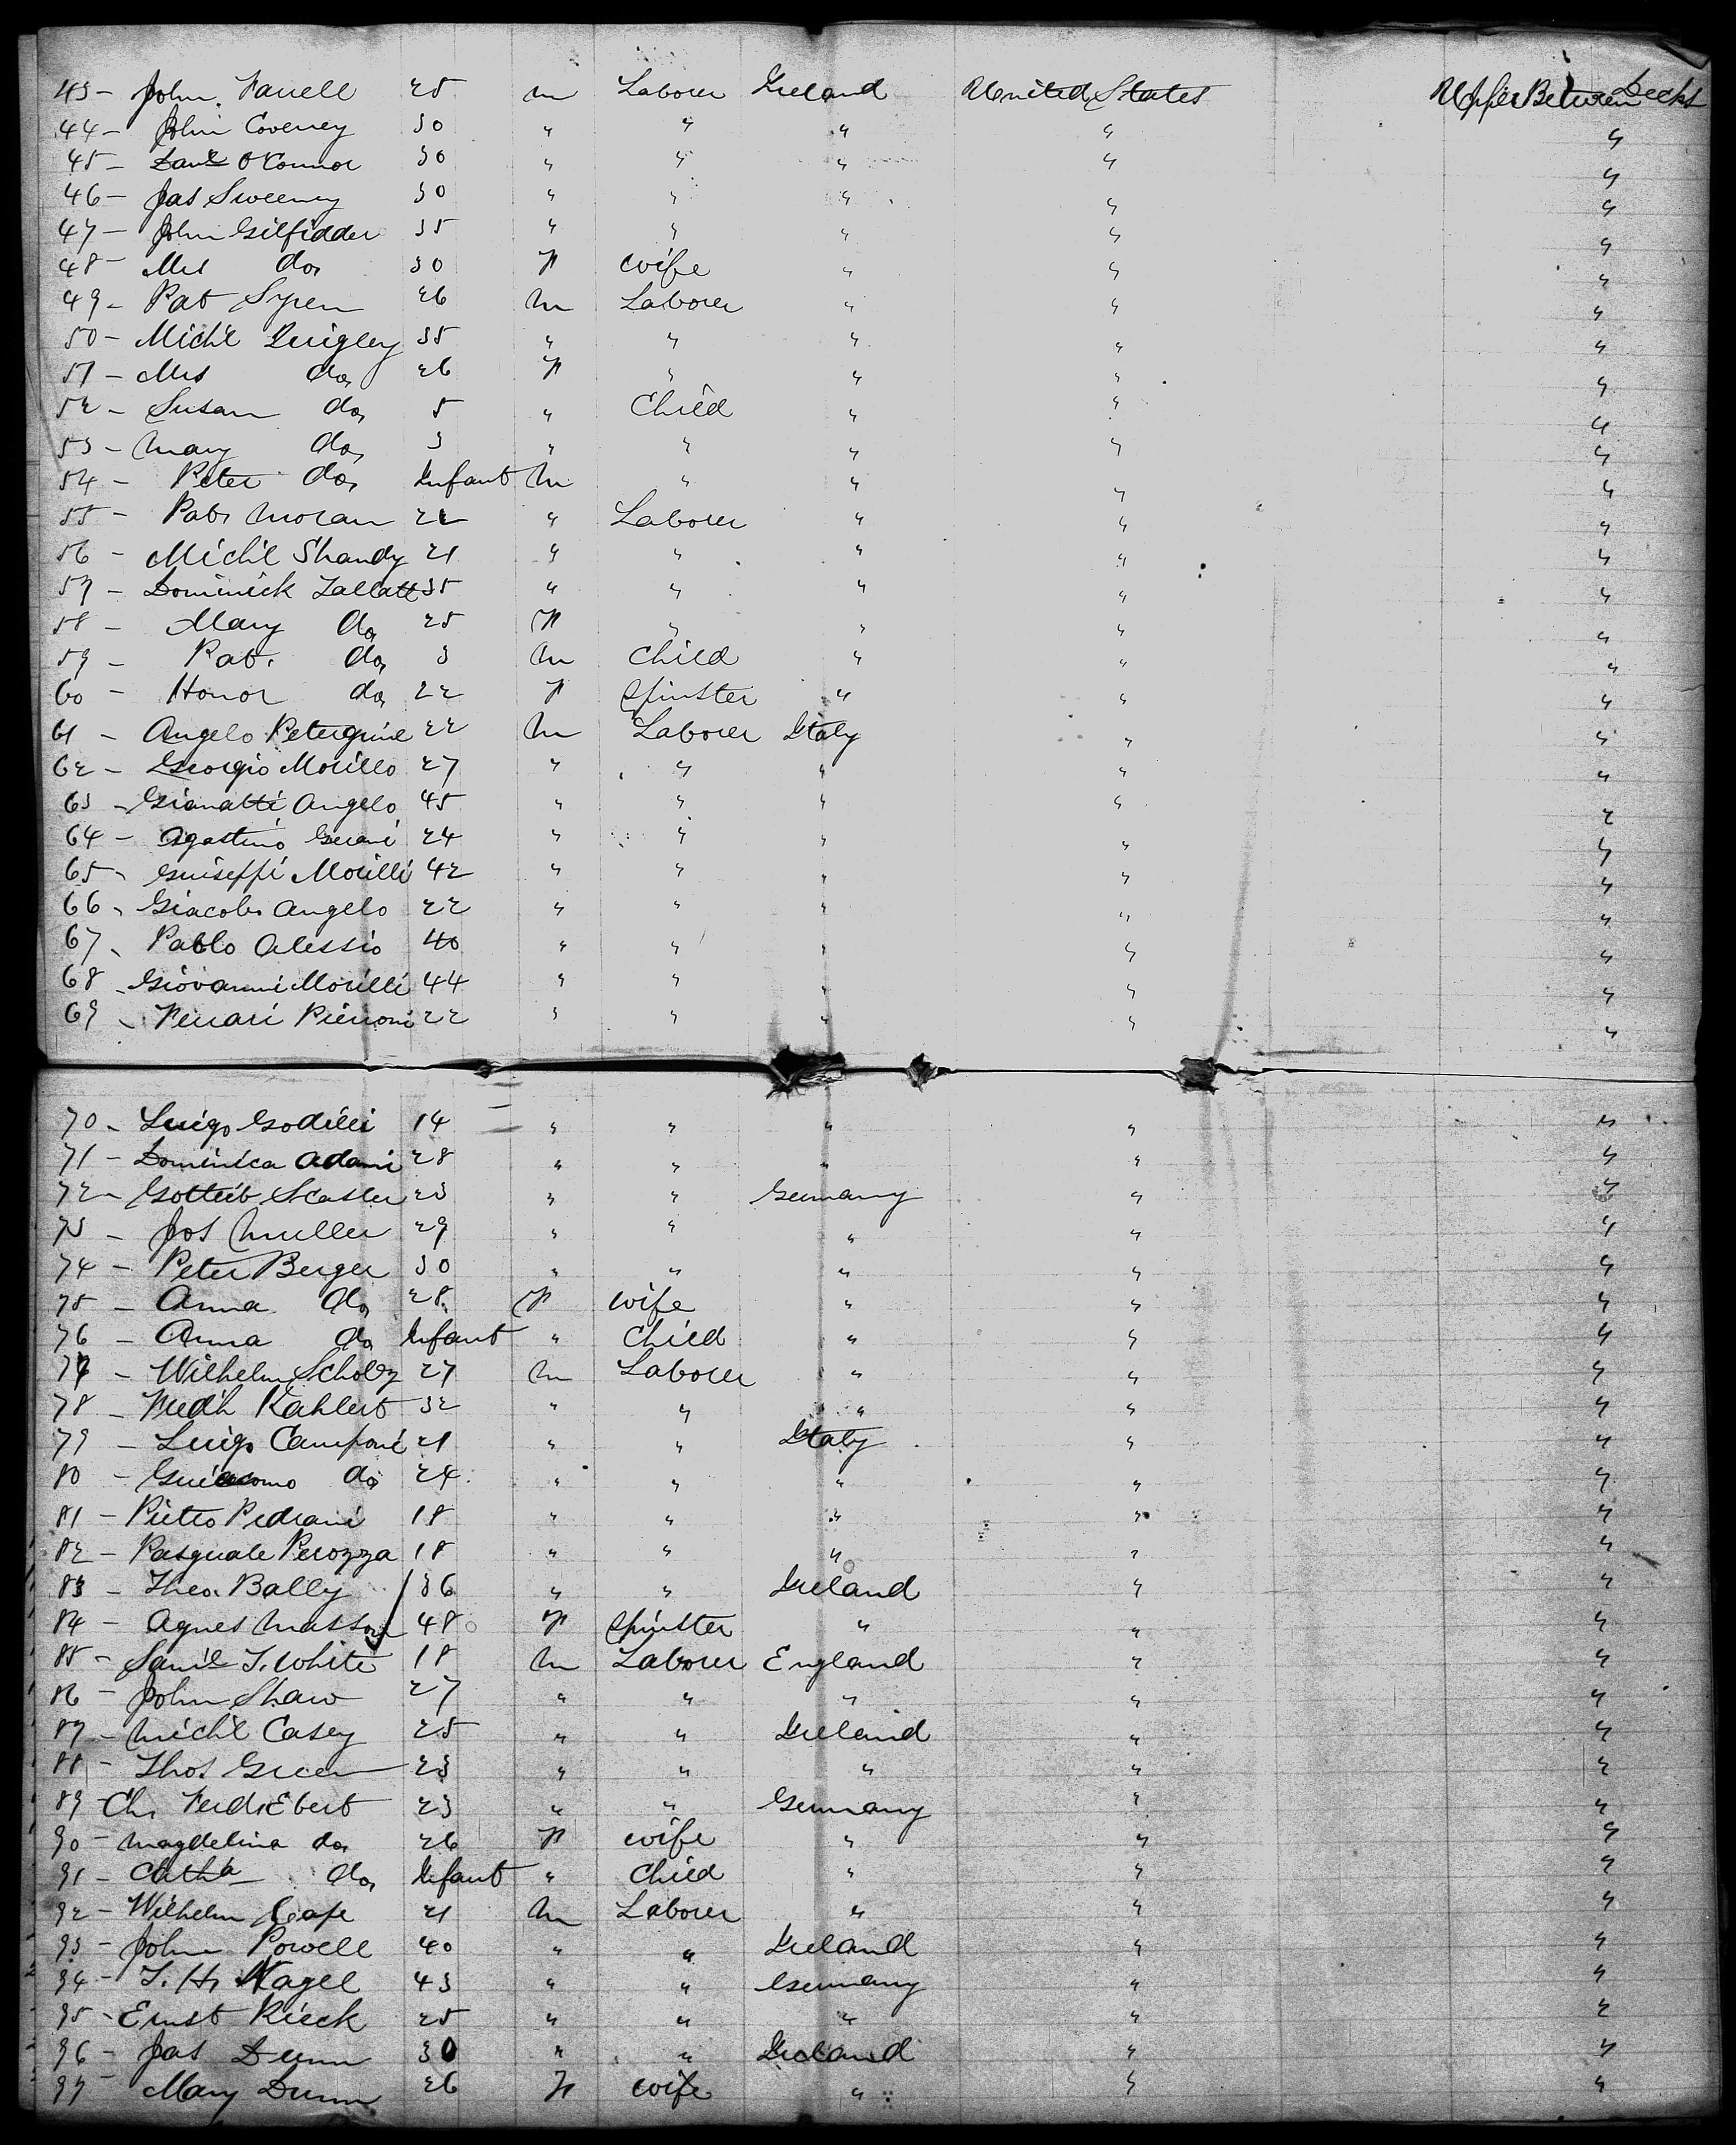 43 - John Farrell 25 m Laborer Ireland United States Upper Between Decks
44 - John Coveney 30 " " " " "
45 - Danl O'Connor 30 " " " " "
46 - Jas Sweeney 30 " " " " "
47 - John Gilfidder 35 " " " " "
48 - Mrs do, 30 F wife " " "
49 - Pat 26 m Laborer " " "
50 - Michl Quigley 35 " " " " "
51 - Mrs do, 26 F " " " "
52 - Susan do, 5 " Child " " "
53 - Mary do, 3 " " " " "
54 - Peter do, Infant m " " " "
55 - Pat. Moran 22 " Laborer " " "
56 - Michl Shandy 21 " " " " "
57 - Dominick Zallatt 35 " " " " "
58 - Mary do, 25 F " " " "
59 - Pat. do, 3 m Child " " "
60 - Honor do, 22 F Spinster " " "
61 - Angelo 22 m Laborer Italy " "
62 - Georgio Morillo 27 " " " " "
63 - Gianatti Angelo 45 " " " " "
64 - Agostino 24 " " " " "
65 - Guiseppi Morilli 42 " " " " "
66 - Giacobo Angelo 22 " " " " "
67 - Pablo Alessio 40 " " " " "
68 - Giovanni Morilli 44 " " " " "
69 - Ferrari Pierroni 22 " " " " "
70 - Luigo Godilli 14 " " " " "
71 - Dominica Adami 28 " " " " "
72 - Gottlieb 23 " " Germany " "
73 - Jos Muller 29 " " " " "
74 - Peter Berger 30 " " " " "
75 - Anna do, 28 F wife " " "
76 - Anna do, Infant " Child " " "
77 - Wilhelm Scholz 27 m Laborer " " "
78 - Fredh Kahlert 32 " " " " "
79 - Luigo Camponi 21 " " Italy " "
80 - Guiacomo do, 24 " " " " "
81 - Pietro Pedrani 18 " " " " "
82 - Pasquale Perozza 18 " " " " "
83 - Theo. Bally 36 " " Ireland " "
84 - Agnes Masson 48 F Spinster " " "
85 - Saml T. White 18 m Laborer England " "
86 - John Shaw 27 " " " " "
87 - Michl Casey 25 " " Ireland " "
88 - Thos. Green 23 " " " " "
89 - Chr Ferd. Ebert 23 " " Germany " "
90 - Magdelina do, 26 F wife " " "
91 - Catha do, Infant " Child " " "
92 - Wilhelm 21 m Laborer " " "
93 - John Powell 40 " " Ireland " "
94 - T. H. Nagel 43 " " Germany " "
95 - Ernst Rieck 25 " " " " "
96 - Jas Dunn 30 " " Ireland " "
97 - Mary Dunn 26 F wife " " "